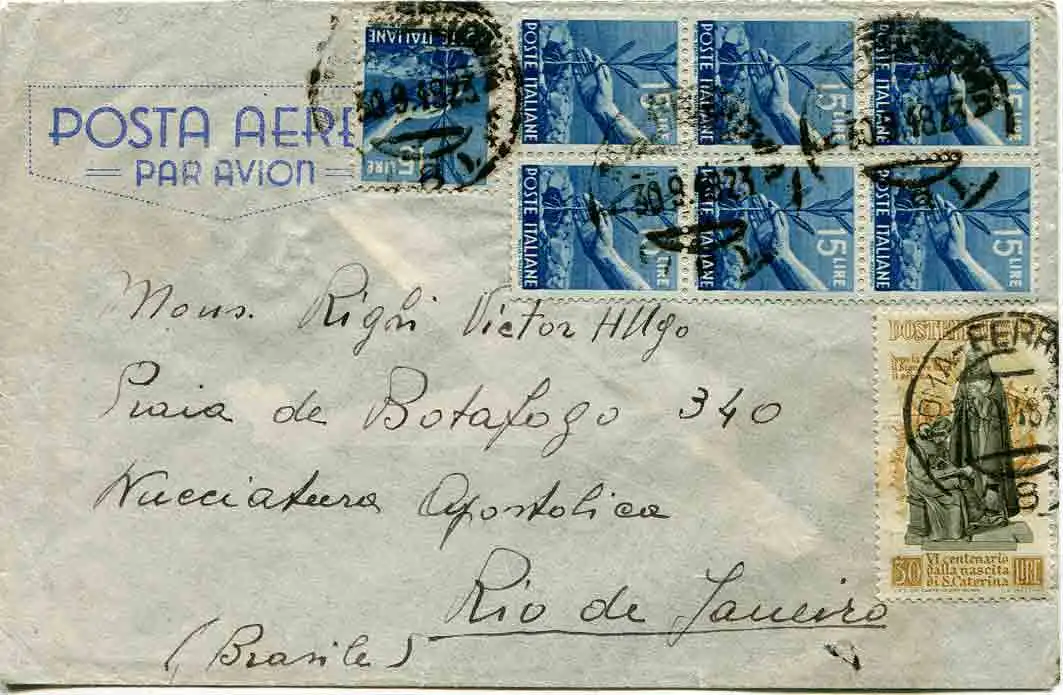 POSTA AERE
PAR AVION
POSTE ITALIANE
15 LIRE
30.9.48 23
POSTE ITALIANE
15 LIRE
POSTE ITALIANE
15 LIRE
POSTE ITALIANE
15 LIRE
30.9.48 23
POSTE ITALIANE
15 LIRE
30.9.48 23
POSTE ITALIANE
15 LIRE
POSTE ITALIANE
15 LIRE
Mons. Righi Victor Hugo
Praia de Botafogo 340
Nucciatura Apostolica
Rio de Janeiro
(Brasile)
POSTE
FERR
30 VI centenario LIRE
dalla nascita
di S. Caterina